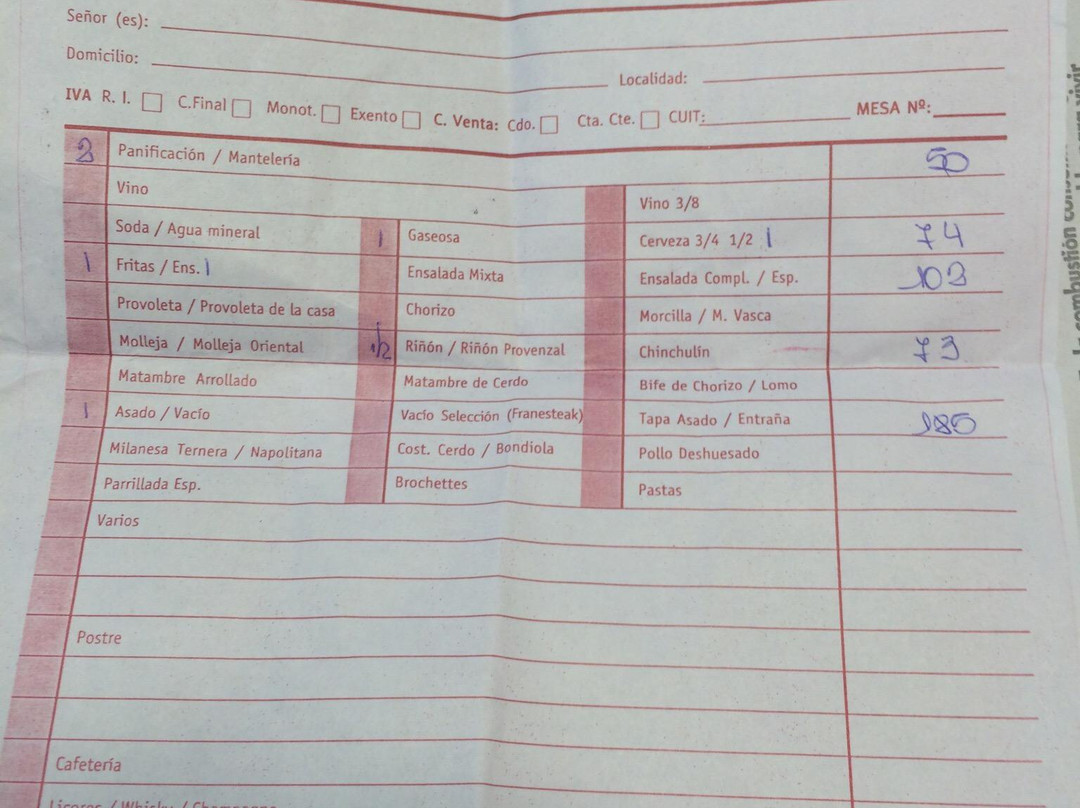 Señor (es):
Domicilio: Localidad:
IVA R. I. C.Final Monot. Exento C. Venta: Cdo. Cta. Cte. CUIT: MESA Nº:
2 Panificación / Mantelería 50
Vino Vino 3/8
Soda / Agua mineral 1 Gaseosa Cerveza 3/4 1/2 1 74
1 Fritas / Ens. 1 Ensalada Mixta Ensalada Compl. / Esp. 103
Provoleta / Provoleta de la casa Chorizo Morcilla / M. Vasca
Molleja / Molleja Oriental 1/2 Riñón / Riñón Provenzal Chinchulín 73
Matambre Arrollado Matambre de Cerdo Bife de Chorizo / Lomo
1 Asado / Vacío Vacío Selección (Franesteak) Tapa Asado / Entraña 185
Milanesa Ternera / Napolitana Cost. Cerdo / Bondiola Pollo Deshuesado
Parrillada Esp. Brochettes Pastas
Varios
Postre
Cafetería
Licores / Whisky / Champagne